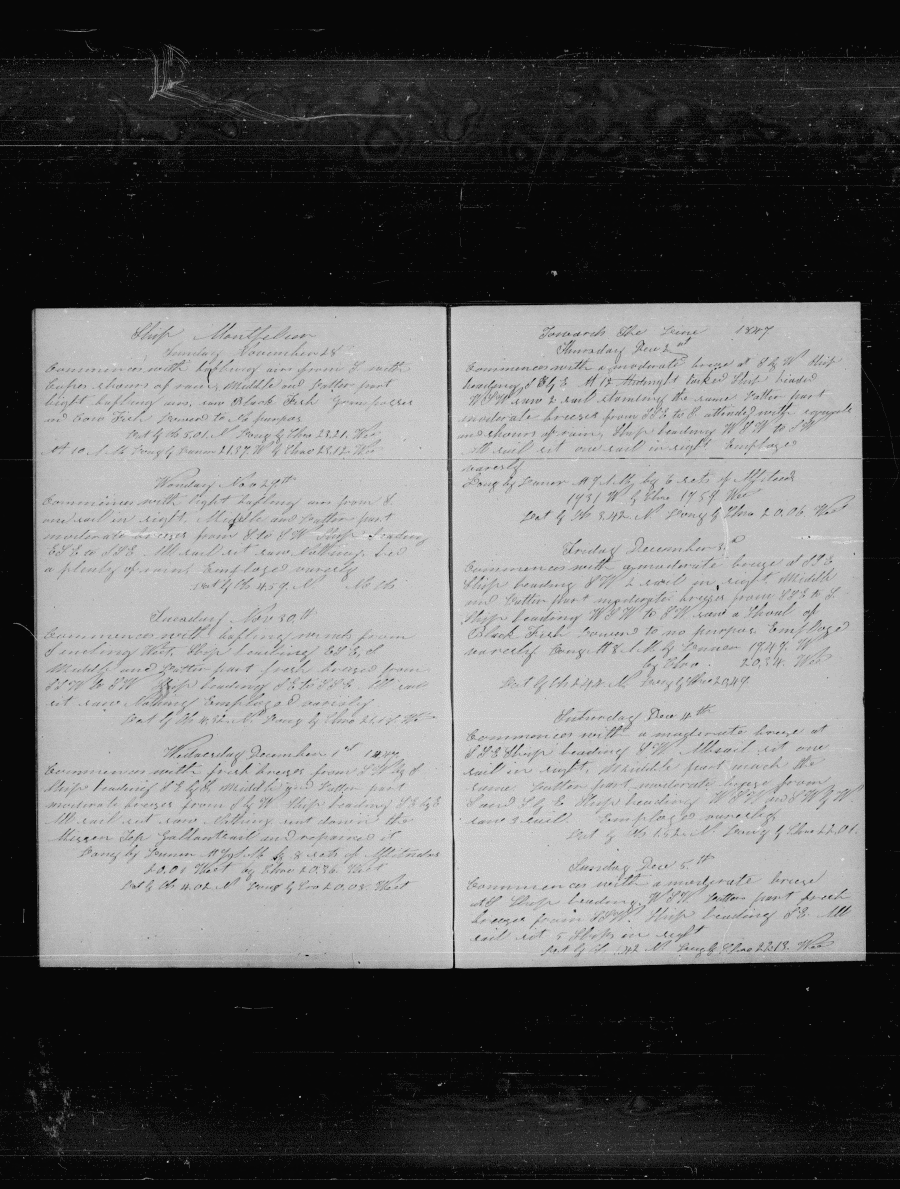 Ship Montpelier
Sunday November 28
Commences with bafling airs from S with
showers of rain, Middle and Latter part
light bafling airs, saw Black Fish Grampusses
and Cow Fish Lowered to No purpos
Lat by Ob 5.01 N Long by Chro 23.21. West
At 10. A M Long by Lunar 21.87 W by Chro 23.12. West
Monday Nov 29th
Commences with light bafling airs from S
one sail in sight, Middle and Latter part
moderate breezes from S to SW Ship heading
ESE to SSE. All sail set saw Nothing, had
a plenty of rain, Employed variously
Lat by Ob 4.59. N No Ob
Tuesday Nov 30th
Commences with bafling winds from
Ship heading ESE,
Middle and Latter part fresh breezes from
SSW to SW Ship heading SE to SSE. All sail
set saw Nothing Employed variously
Lat by Ob 4.32 N Long by Chro 21.18. West
Wednesday December 1st 1847
Commences with fresh breezes from SW by S
Ship heading SE by S, Middle and Latter part
moderate breezes from S by W Ship heading SE by E
All sail set saw Nothing, sent down the
Mizzen Top Gallantsail and repaired it
Long by Lunar At P M by 8 sets of Altitudes
20.01 West by Chro 20.36. West
Lat by Ob 4.02 N Long by Chro 20.03. West
Towards the Line 1847
Thursday Dec 2nd
Commences with a moderate breeze at S by W Ship
heading SE by E At 12 Midnight tacked Ship headed
WSW saw 2 sail standing the same Latter part
moderate breezes from SSE to S attended with squalls
and showers of rain, Ship heading WSW to SW
All sail set one sail in sight Employed
variously
Long by Lunar At by 6 sets of Altitudes
19.31 W by Chro 19.59 West
Lat by Ob 3.42 N Long by Chro 20.06 West
Friday December 3d
Commences with a moderate breeze at SSE
Ship heading SW 2 sail in sight, Middle
and Latter part moderate breezes from SSE to S
Ship heading WSW to SW saw a Shoal of
Black Fish Lowered to no purpos Employed
variously Long At 8 A M by Lunar 19.49. W
by Chro 20.34. West
Lat by Ob 2.44 N Long by Chro 20.49
Saturday Dec 4th
Commences with a moderate breeze at
SSE Ship heading SW All sail set one
sail in sight, Middle part much the
same Latter part moderate breeze from
S and S by E Ship heading WSW and SW by W
saw 3 sail Employed variously
Lat by Ob 1.52 N Long by Chro 22.01.
Sunday Dec 5th
Commences with a moderate breeze
at S Ship heading WSW Latter part fresh
breezes from SSW, Ship heading SE All
sail set 5 Ships in sight
Lat by Ob .42 N Long by Chro 22.18. West